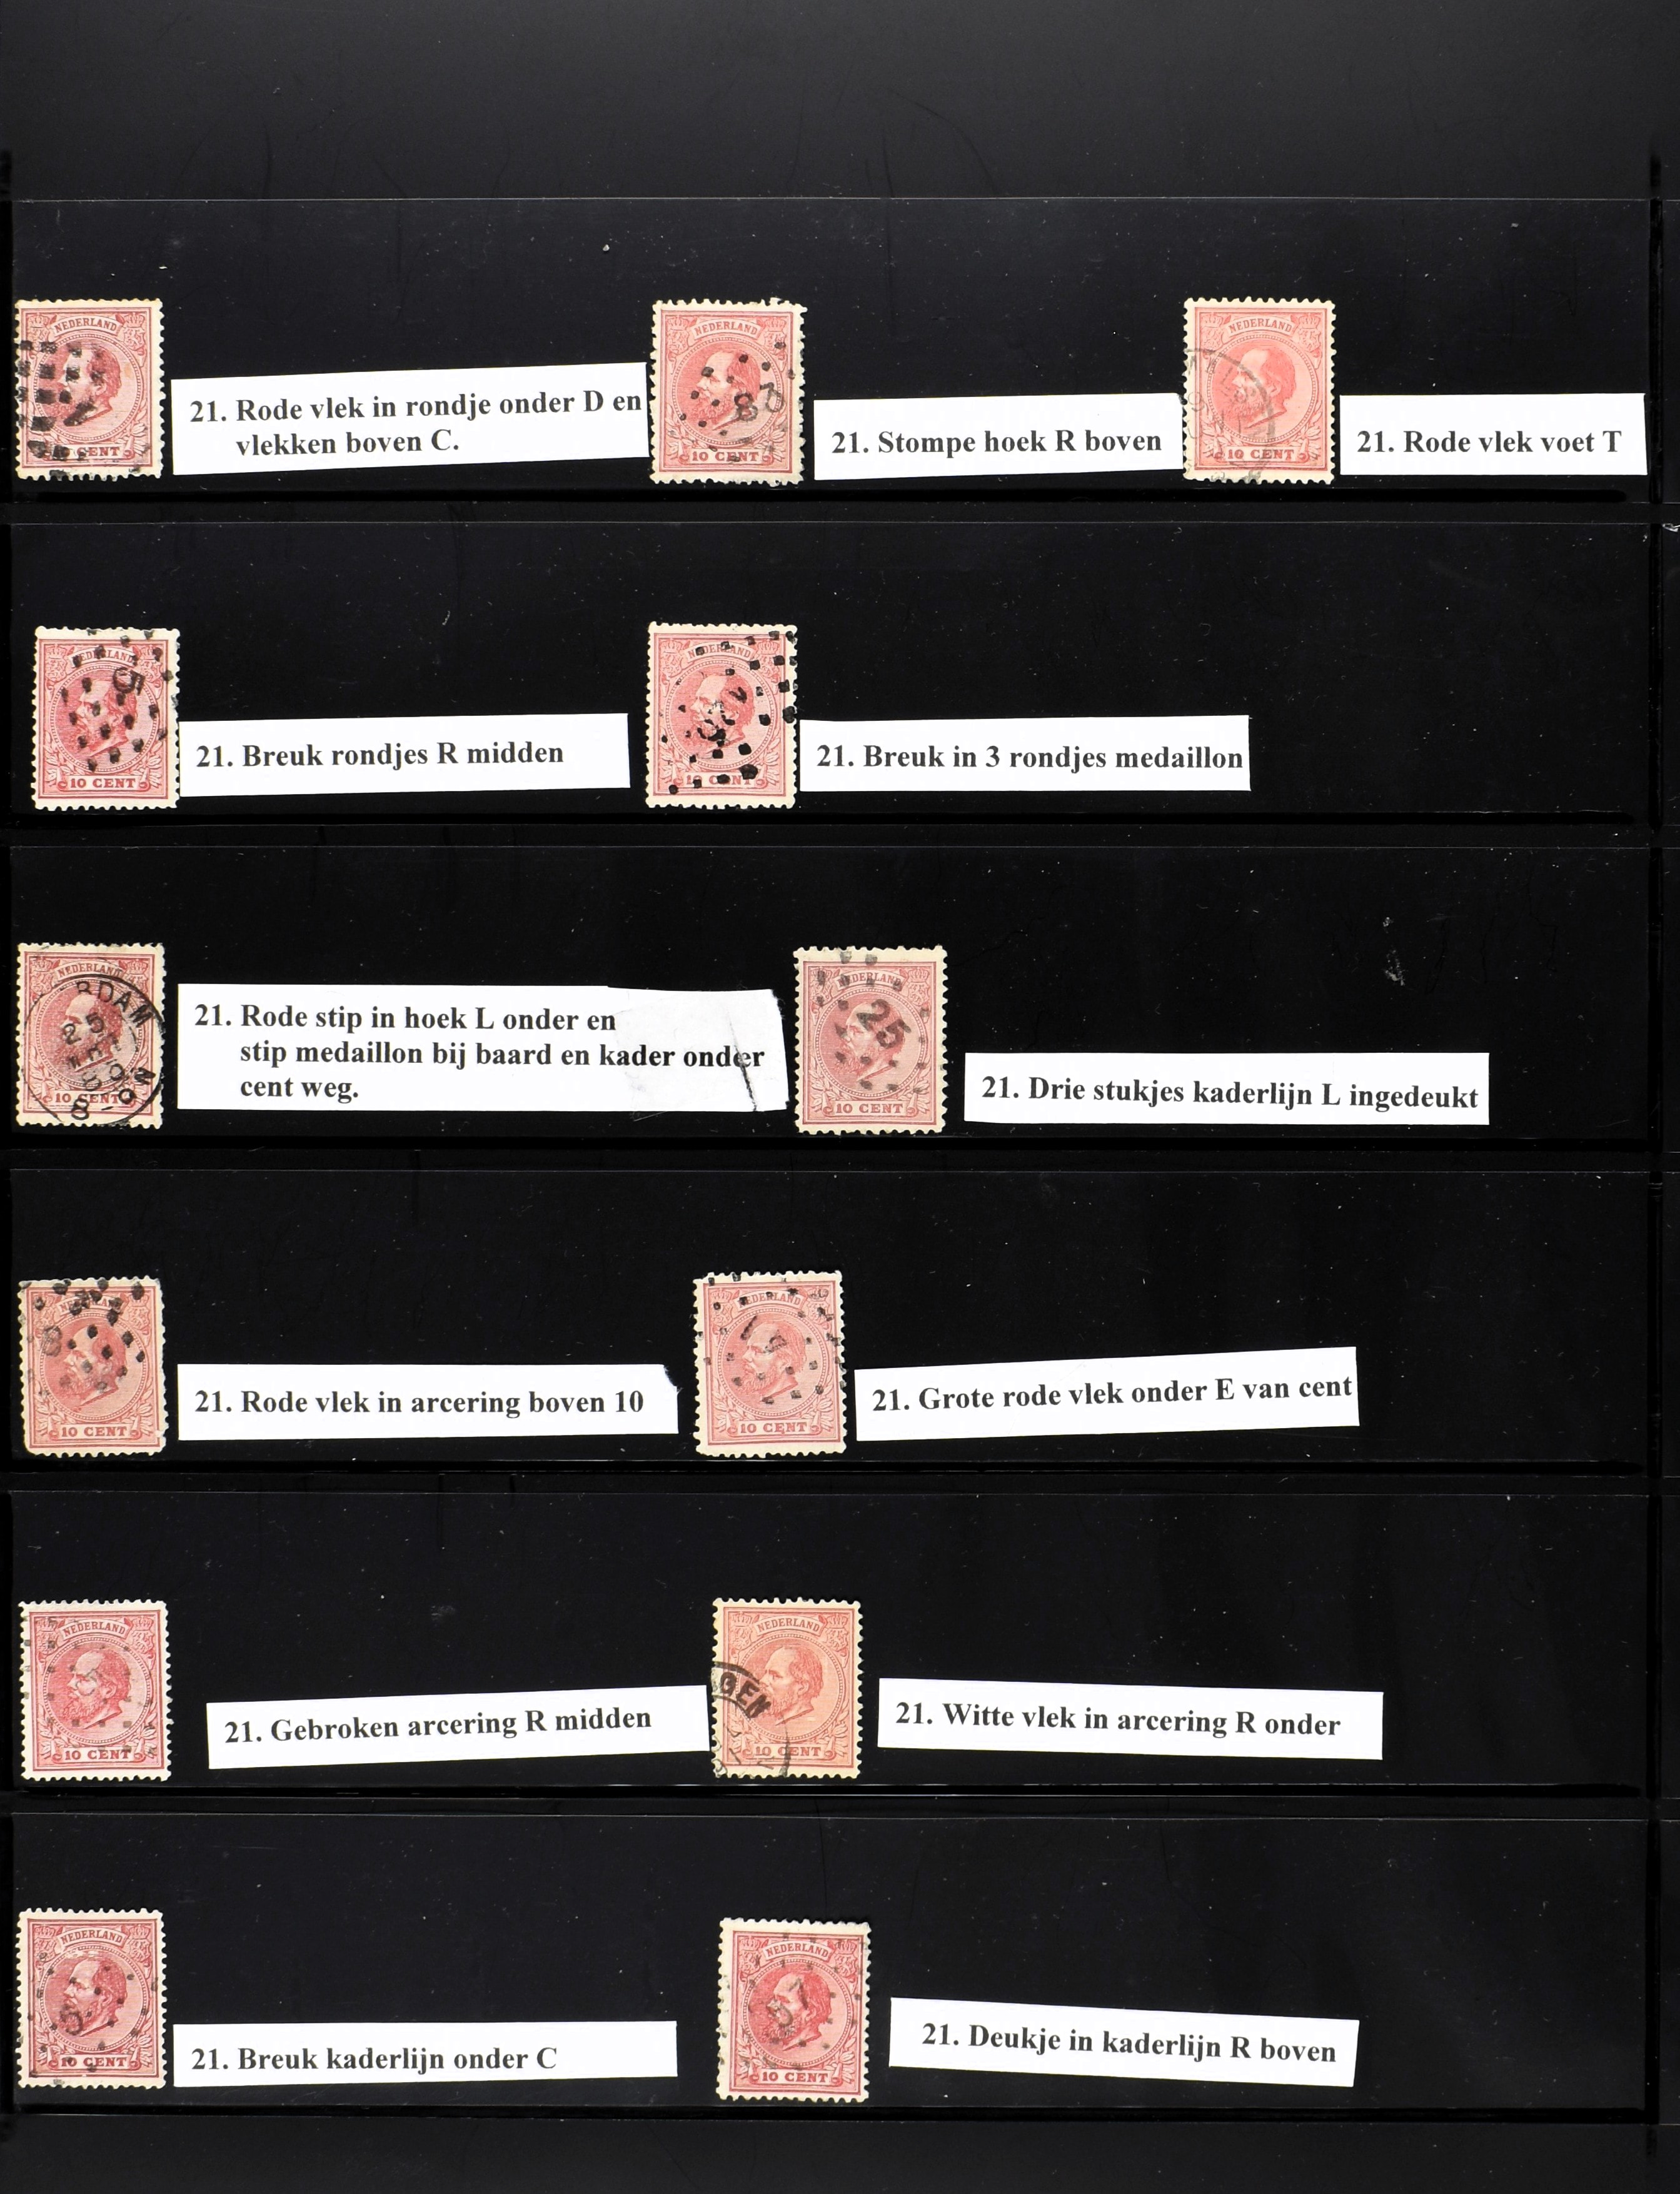 NEDERLAND
CENT
21. Rode vlek in rondje onder D en
vlekken boven C.
NEDERLAND
10 CENT
21. Stompe hoek R boven
NEDERLAND
10 CENT
21. Rode vlek voet T
NEDERLAND
5
10 CENT
21. Breuk rondjes R midden
NEDERLAND
10 CENT
21. Breuk in 3 rondjes medaillon
NEDERLAND
RDAM
10 CENT
21. Rode stip in hoek L onder en
stip medaillon bij baard en kader onder
cent weg.
NEDERLAND
25
10 CENT
21. Drie stukjes kaderlijn L ingedeukt
10 CENT
21. Rode vlek in arcering boven 10
NEDERLAND
10 CENT
21. Grote rode vlek onder E van cent
NEDERLAND
10 CENT
21. Gebroken arcering R midden
NEDERLAND
GEN
10 CENT
21. Witte vlek in arcering R onder
NEDERLAND
5
10 CENT
21. Breuk kaderlijn onder C
NEDERLAND
57
10 CENT
21. Deukje in kaderlijn R boven